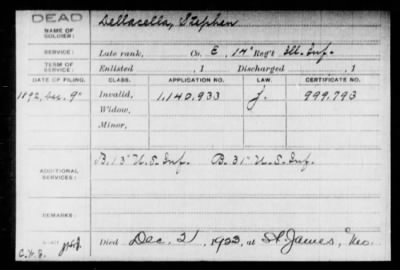 DEAD
NAME OF SOLDIER: Dellacella, Stephen
SERVICE: Late rank, Co. E, 14" Reg't Ill. Inf.
TERM OF SERVICE: Enlisted , 1 Discharged , 1
DATE OF FILING. CLASS. APPLICATION NO. LAW. CERTIFICATE NO.
1892, Dec. 9" Invalid, 1,140,933 J. 999,793
Widow,
Minor,
ADDITIONAL SERVICES: B. 13" U.S. Inf. B. 31" U.S. Inf.
REMARKS:
Died Dec. 21, 1923, at St. James, Mo.